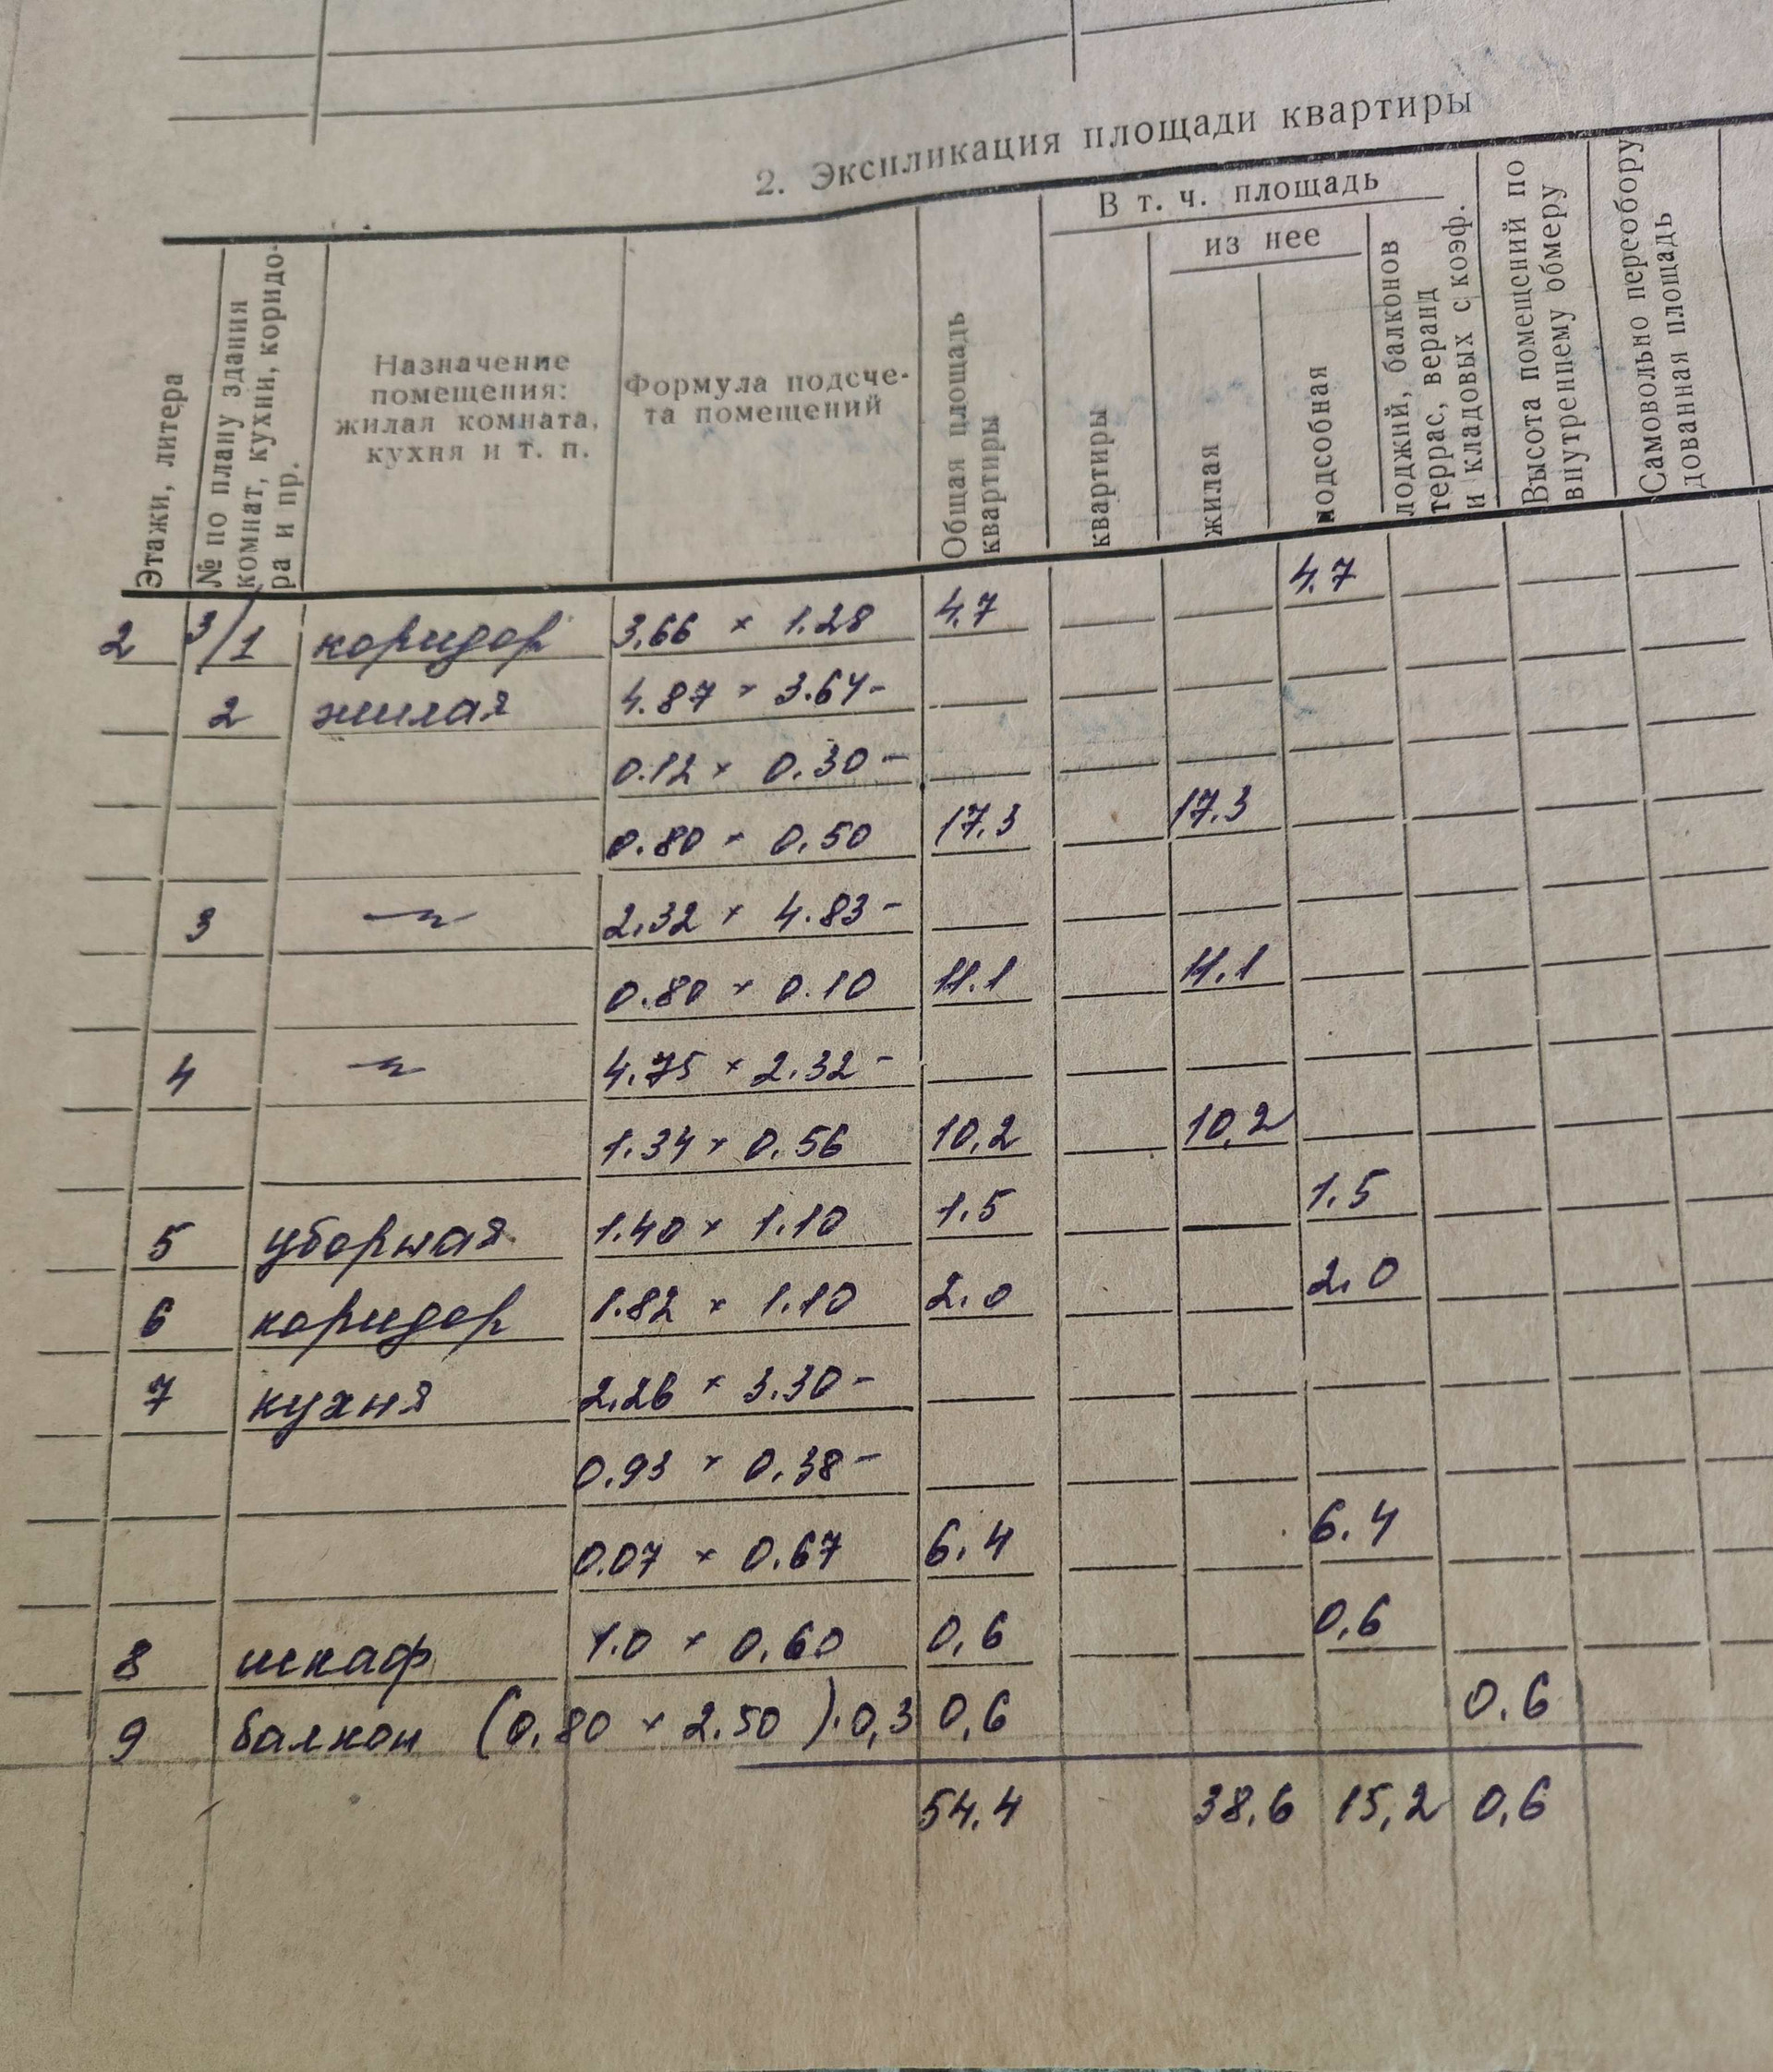 2. Экспликация площади квартиры
Этажи, литера
№ по плану здания
комнат, кухни, коридо-
ра и пр.
Назначение
помещения:
жилая комната,
кухня и т. п.
Формула подсче-
та помещений
Общая площадь
квартиры
В т. ч. площадь
квартиры
из нее
жилая
подсобная
лоджий, балконов
террас, веранд
и кладовых с коэф.
Высота помещений по
внутреннему обмеру
Самовольно переобору
дованная площадь
2 3/1 коридор 3.66 × 1.28 4.7 4.7
2 жилая 4.87 × 3.64-
0.12 × 0.30-
0.80 × 0.50 17.3 17.3
3 —〃— 2.32 × 4.83-
0.80 × 0.10 11.1 11.1
4 —〃— 4.75 × 2.32-
1.34 × 0.56 10,2 10,2
5 уборная 1.40 × 1.10 1.5 1.5
6 коридор 1.82 × 1.10 2.0 2.0
7 кухня 2.26 × 3.30-
0.93 × 0.38-
0.07 × 0.67 6.4 6.4
8 шкаф 1.0 × 0.60 0,6 0,6
9 балкон (0.80 × 2.50).0,3 0,6 0.6
54.4 38.6 15,2 0,6